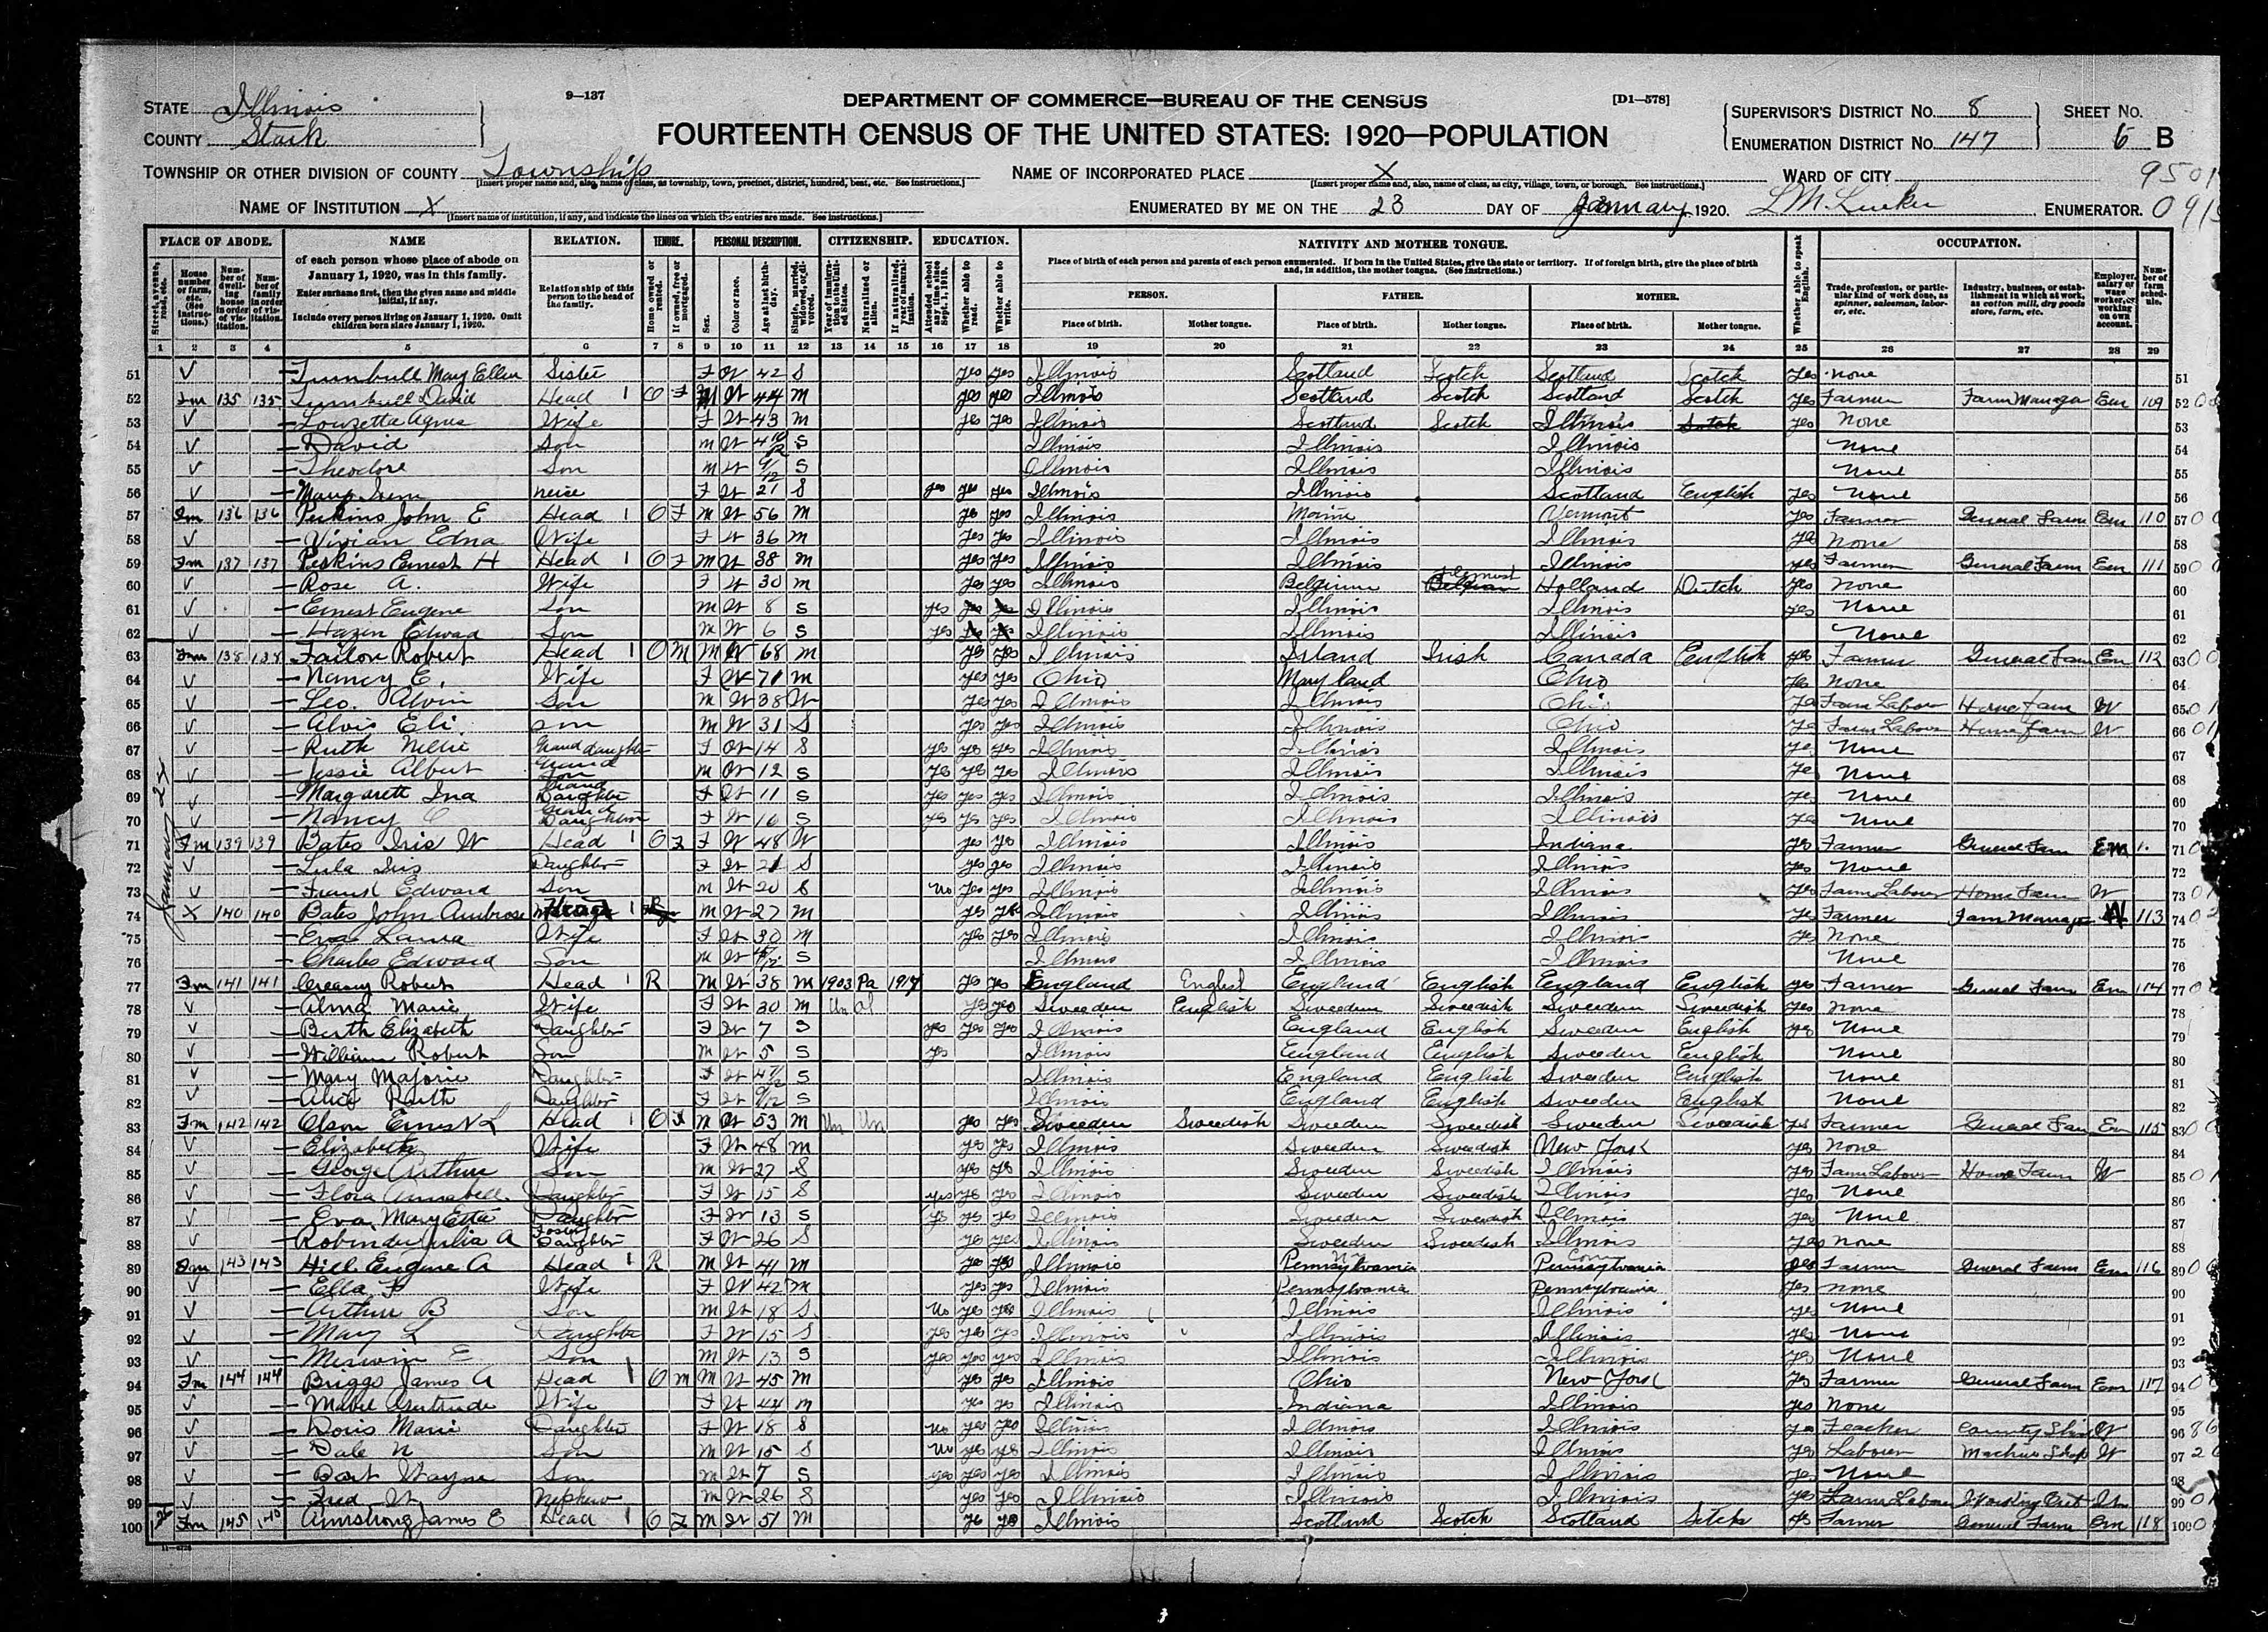 STATE Illinois
9—137
DEPARTMENT OF COMMERCE—BUREAU OF THE CENSUS
[D1—578]
SUPERVISOR'S DISTRICT NO. 8
SHEET NO.
COUNTY Stark
FOURTEENTH CENSUS OF THE UNITED STATES: 1920—POPULATION
ENUMERATION DISTRICT NO. 147
6 B
TOWNSHIP OR OTHER DIVISION OF COUNTY Township
[Insert proper name and, also, name of class, as township, town, precinct, district, hundred, beat, etc. See instructions.]
NAME OF INCORPORATED PLACE X
[Insert proper name and, also, name of class, as city, village, town, or borough. See instructions.]
WARD OF CITY
9501
NAME OF INSTITUTION X
[Insert name of institution, if any, and indicate the lines on which the entries are made. See instructions.]
ENUMERATED BY ME ON THE 23 DAY OF January, 1920. ENUMERATOR.
PLACE OF ABODE. NAME RELATION. TENURE. PERSONAL DESCRIPTION. CITIZENSHIP. EDUCATION. NATIVITY AND MOTHER TONGUE. OCCUPATION.
of each person whose place of abode on January 1, 1920, was in this family.
Enter surname first, then the given name and middle initial, if any.
Include every person living on January 1, 1920. Omit children born since January 1, 1920.
Relationship of this person to the head of the family.
Place of birth of each person and parents of each person enumerated. If born in the United States, give the state or territory. If of foreign birth, give the place of birth and, in addition, the mother tongue. (See instructions.)
PERSON. FATHER. MOTHER.
Place of birth. Mother tongue. Place of birth. Mother tongue. Place of birth. Mother tongue.
Trade, profession, or particular kind of work done, as spinner, salesman, laborer, etc.
Industry, business, or establishment in which at work, as cotton mill, dry goods store, farm, etc.
Employer, salary or wage worker, or working on own account.
Number of farm schedule.
1 2 3 4 5 6 7 8 9 10 11 12 13 14 15 16 17 18 19 20 21 22 23 24 25 26 27 28 29
51 Turnbull Mary Ellen Sister F W 42 S yes yes Illinois Scotland Scotch Scotland Scotch yes none
52 Fm 135 135 Turnbull David Head 1 O F M W 44 m yes yes Illinois Scotland Scotch Scotland Scotch yes Farmer Farm Manager Em 109
53 Louzetta Agnes Wife F W 43 m yes yes Illinois Scotland Scotch Illinois yes None
54 David Son m W 4 10/12 S Illinois Illinois Illinois None
55 Theodore Son m W 9/12 S Illinois Illinois Illinois None
56 neice F W 21 S yes yes yes Illinois Illinois Scotland English yes None
57 Fm 136 136 Perkins John E Head 1 O F m W 56 m yes yes Illinois Maine Vermont yes Farmer General Farm Em 110
58 Vivian Edna Wife F W 36 m yes yes Illinois Illinois Illinois yes None
59 Fm 137 137 Perkins Ernest H Head 1 O F m W 38 m yes yes Illinois Illinois Illinois yes Farmer General Farm Em 111
60 Rose A. Wife F W 30 m yes yes Illinois Belgium Holland Dutch yes None
61 Ernest Eugene Son m W 8 S yes Illinois Illinois Illinois yes None
62 Hazen Edward Son m W 6 S yes Illinois Illinois Illinois None
63 Fm 138 138 Failon Robert Head 1 O M M W 68 m yes yes Illinois Island Irish Canada English yes Farmer General Farm Em 112
64 Nancy E. Wife F W 71 m yes yes Ohio Maryland Ohio yes None
65 Leo. Alvin Son m W 38 W yes yes Illinois Illinois Ohio yes Farm Labour Home farm W
66 Alvis Eli Son m W 31 S yes yes Illinois Illinois Ohio yes Farm Labour Home farm W
67 Ruth Nellie Grand daughter F W 14 S yes yes yes Illinois Illinois Illinois yes None
68 Jessie Albert Grand Son m W 12 S yes yes yes Illinois Illinois Illinois yes None
69 Margarett Ina Grand Daughter F W 11 S yes yes yes Illinois Illinois Illinois yes None
70 Nancy C Grand Daughter F W 10 S yes yes yes Illinois Illinois Illinois yes None
71 Fm 139 139 Bates Iris W Head 1 O F F W 48 W yes yes Illinois Illinois Indiana yes Farmer General Farm Em
72 Lula Iris Daughter F W 21 S yes yes Illinois Illinois Illinois yes None
73 Frank Edward Son m W 20 S no yes yes Illinois Illinois Illinois yes Farm Labour Home Farm W
74 X 140 140 Bates John Ambrose Head 1 R m W 27 m yes yes Illinois Illinois Illinois yes Farmer Farm Manager W 113
75 Eva Laura Wife F W 30 m yes yes Illinois Illinois Illinois yes None
76 Charles Edward Son m W S Illinois Illinois Illinois None
77 Fm 141 141 Creasey Robert Head 1 R M W 38 m 1903 Pa 1917 yes yes England English England English England English yes Farmer General Farm Em 114
78 Alma Marie Wife F W 30 m Un al yes yes Sweeden English Sweeden Sweedish Sweeden Sweedish yes None
79 Berth Elizabeth Daughter F W 7 S yes yes yes Illinois England English Sweeden English yes None
80 William Robert Son m W 5 S yes Illinois England English Sweeden English None
81 Mary Majorie Daughter F W S Illinois England English Sweeden English None
82 Alice Ruth Daughter F W S Illinois England English Sweeden English None
83 Fm 142 142 Olson Ernest L Head 1 O F M W 53 m Un Un yes yes Sweeden Sweedish Sweeden Sweedish Sweeden Sweedish yes Farmer General Farm Em 115
84 Elizabeth Wife F W 48 m yes yes Illinois Sweeden Sweedish New York yes None
85 George Arthur Son m W 27 S yes yes Illinois Sweeden Sweedish Illinois yes Farm Labour Home Farm W
86 Flora Annabell Daughter F W 15 S yes yes yes Illinois Sweeden Sweedish Illinois yes None
87 Eva Mary Etta Daughter F W 13 S yes yes yes Illinois Sweeden Sweedish Illinois yes None
88 Julia A Foster Daughter F W 26 S yes yes Illinois Sweeden Sweedish Illinois yes None
89 Fm 143 143 Hill Eugene A Head 1 R m W 41 m yes yes Illinois Pennsylvania Pennsylvania yes Farmer General Farm Em 116
90 Ella F Wife F W 42 m yes yes Illinois Pennsylvania Pennsylvania yes None
91 Arthur B Son m W 18 S no yes yes Illinois Illinois Illinois yes None
92 Mary L Daughter F W 15 S yes yes yes Illinois Illinois Illinois yes None
93 Merwin E Son m W 13 S yes yes yes Illinois Illinois Illinois yes None
94 Fm 144 144 Briggs James A Head 1 O m M W 45 m yes yes Illinois Ohio New York yes Farmer General Farm Em 117
95 Mabel Gertrude Wife F W 44 m yes yes Illinois Indiana Illinois yes None
96 Doris Marie Daughter F W 18 S no yes yes Illinois Illinois Illinois yes Teacher W
97 Dale N Son m W 15 S no yes yes Illinois Illinois Illinois yes Labourer Machine Shop W
98 Bart Wayne Son m W 7 S yes yes yes Illinois Illinois Illinois yes None
99 Fred W Nephew m W 26 S yes yes Illinois Illinois Illinois yes Farm Labour Working Out W
100 Fm 145 145 Armstrong James E Head 1 O F M W 51 m yes yes Illinois Scotland Scotch Scotland Scotch yes Farmer General Farm Em 118